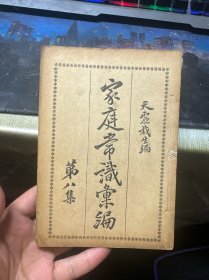 天虚我生編
家庭常識彙編
第八集